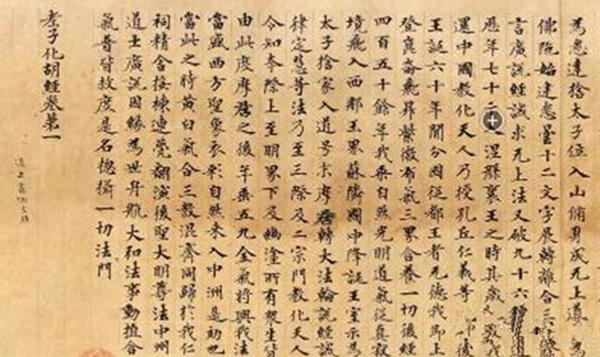 為悉達捨太子位入山脩身成无上道
佛陁始建悉曇十二文字展轉離合三
言廣說經誡求无上法又破九十六
歷年七十二涅槃襄王之時其歲我
還中國教化天人乃授孔丘仁義等後
王誕六十年間分因從都王者无德我即上
登崑崙飛昇紫微布氣三界含養一切後經
四百五十餘年我乘自然光明道氣從真寂
境飛入西那玉界蘇隣國中降誕王室示為
太子捨家入道号末摩尼轉大法輪說經誡
律定慧等法乃至三際及二宗門教化天人
令知本際上至明界下及幽塗所有眾生皆
由此度摩尼之後年垂五九金氣將興我法
當盛西方聖象衣彩自然來入中洲是効也
當此之時黃白氣合三教混齊同歸於我仁
祠精舍接棟連甍翻演後聖大明尊法中州
道士廣說因緣為世舟航大和法事動植含
氣普皆救度是名捴攝一切法門
老子化胡經卷第一